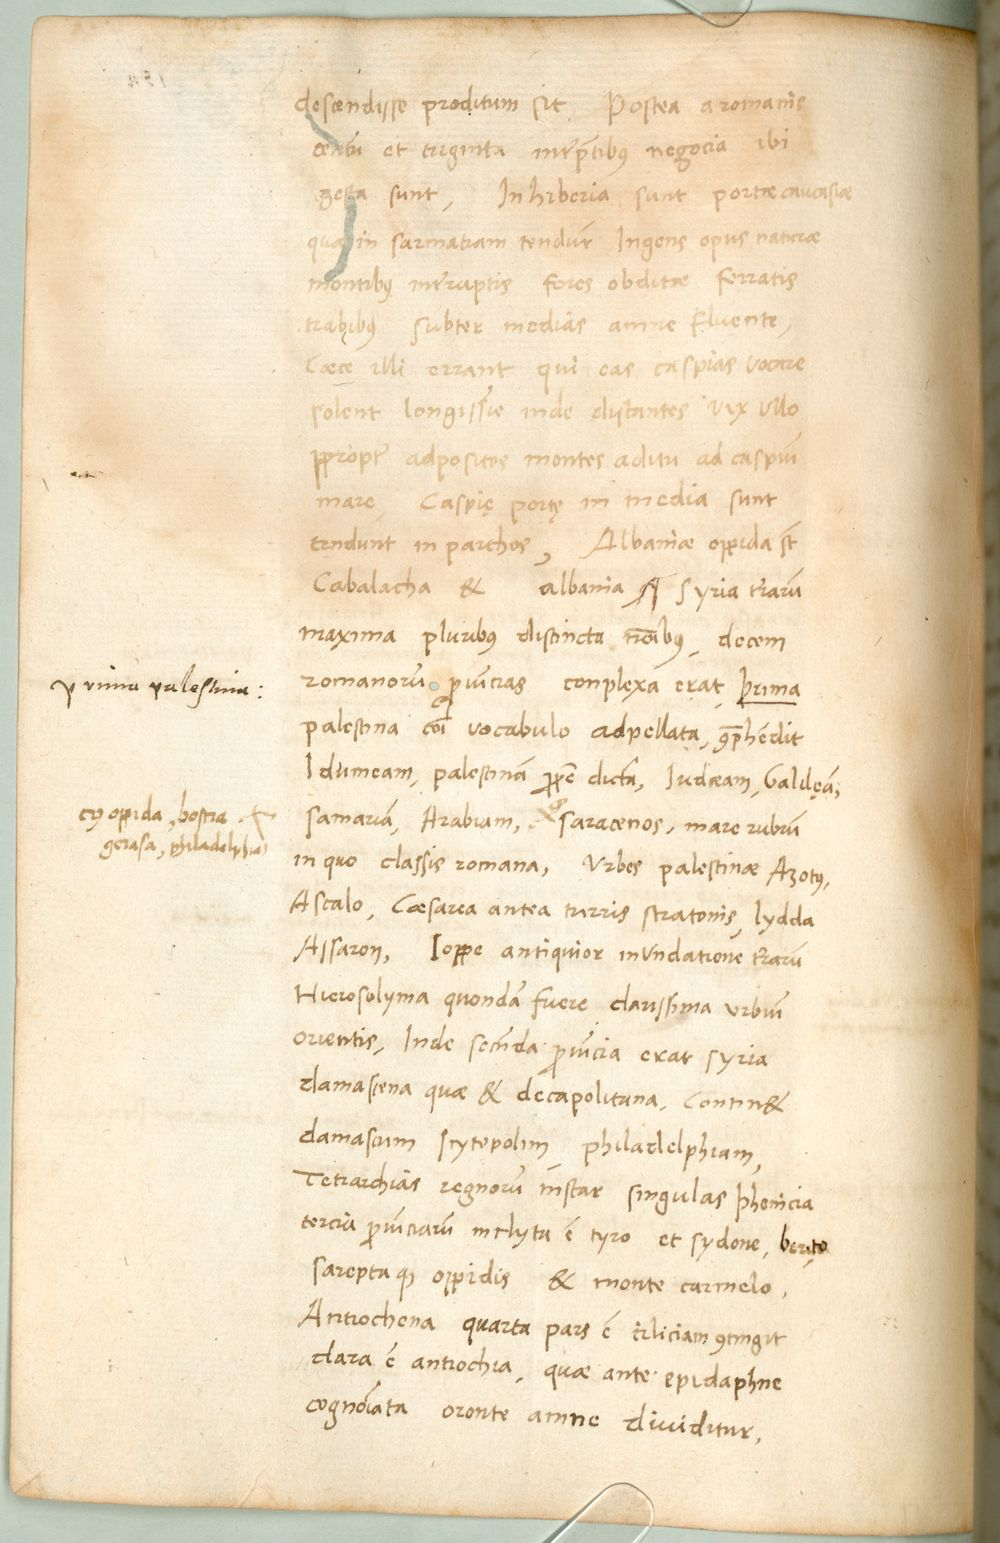 descendisse proditum sit. Postea a romanis
centũ et triginta interp̃tibꝰ negocia ibi
gesta sunt, In hiberia sunt portæ caucasiæ
quæ in sarmatiam tendũt Ingens opus naturæ
montibꝰ interruptis fores obditæ ferratis
trabibꝰ subter medias amne fluente,
Cæce illi errant qui eas caspias vocare
solent longissĩe inde distantes vix ullo
ꝓpropt̃ adpositos montes aditu ad caspiũ
mare, Caspię portę in media sunt
tendunt in parthos, Albaniæ oppida st̃
Cabalacha & albania ¶ Syria t̃rarũ
maxima pluribꝰ distincta nõibꝰ, decem
romanorũ ꝓuĩcias conplexa erat, Prima
palestina cõi vocabulo adpellata, ꝯp̃hẽdit
Idumeam, palestinã ꝓpẽ dictã, Iudæam, Galilęã,
samariã, Arabiam, saracenos, mare rubrũ
in quo classis romana, Vrbes palestinæ Azotꝰ,
Ascalo, Cæsarea antea turris stratonis, lydda
Assaron, Ioppe antiquior inundatione t̃rarũ
Hierosolyma quondã fuere clarissima urbiũ
orientis, Inde secũda ꝓuĩcia erat syria
damascena quæ & decapolitana, Contin&
damascum scytopolim philadelphiam,
Tetrarchias regnorũ instar singulas phenicia
tercia ꝓuĩciarũ inclyta ẽ tyro et sydone, beryto
sareptaqꝫ oppidis & monte carmelo,
Antiochena quarta pars ẽ ciliciam ꝯtingit
clara ẽ antiochia, quæ ante epidaphne
cognoĩata oronte amne diuiditur,
prima palestina:
cꝰ oppida, bostra &
gerasa, philadelphia